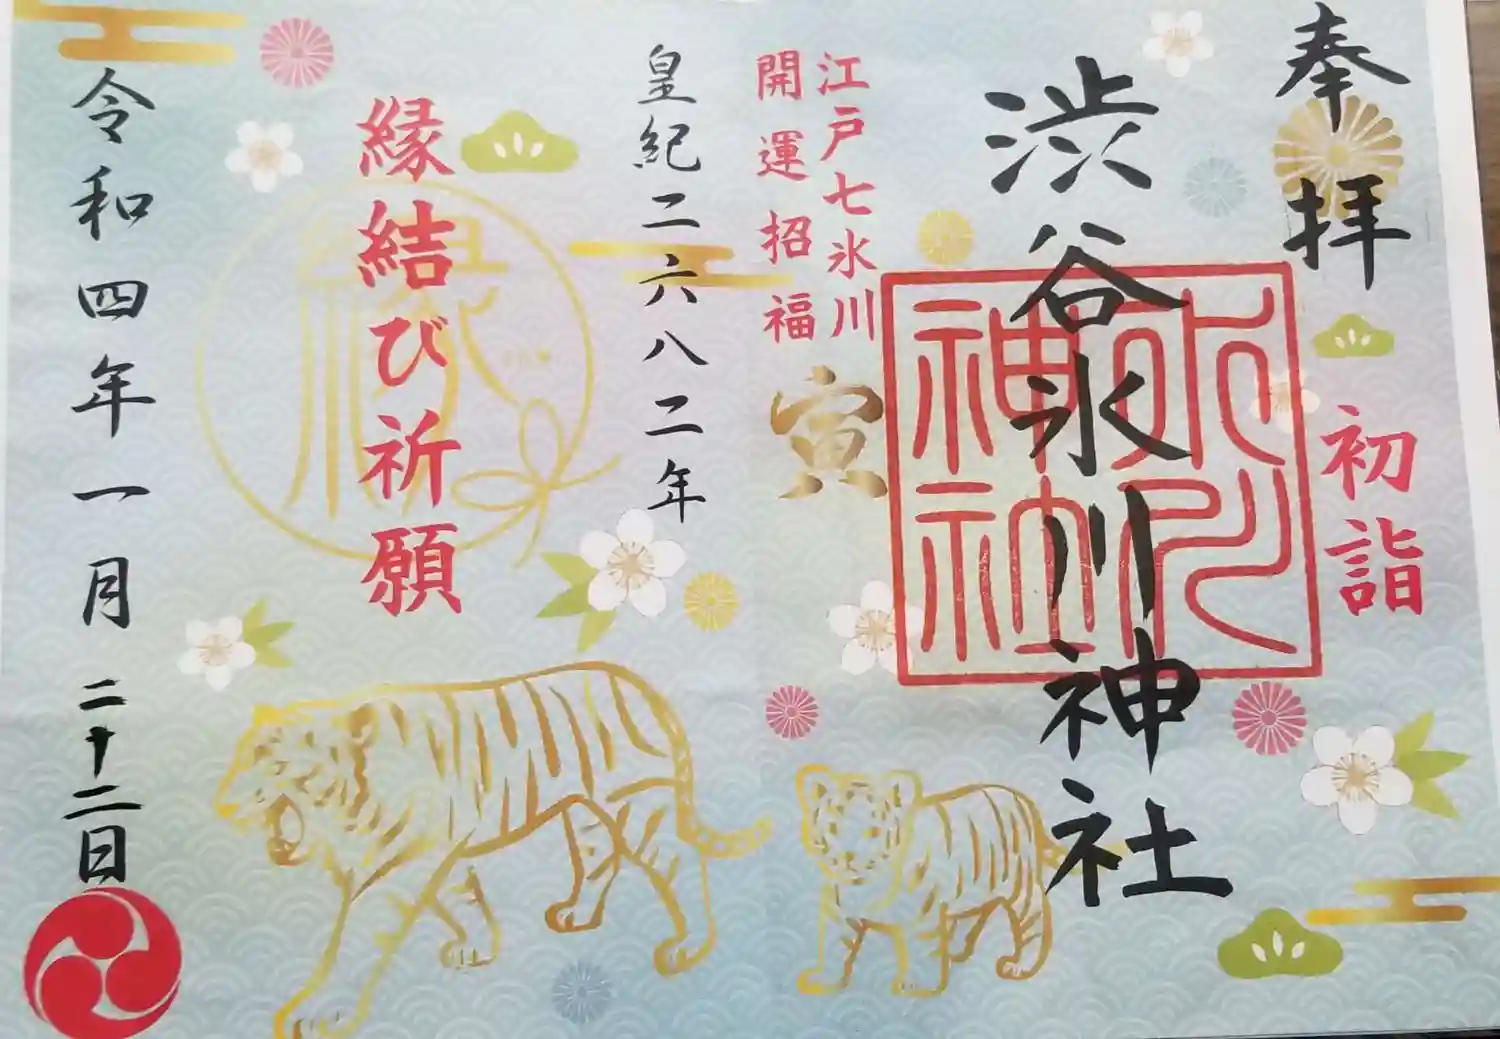 奉拝
初詣
渋谷氷川神社
氷川
神社
江戸七氷川
開運招福
寅
皇紀二六八二年
縁結び祈願
令和四年一月二十二日